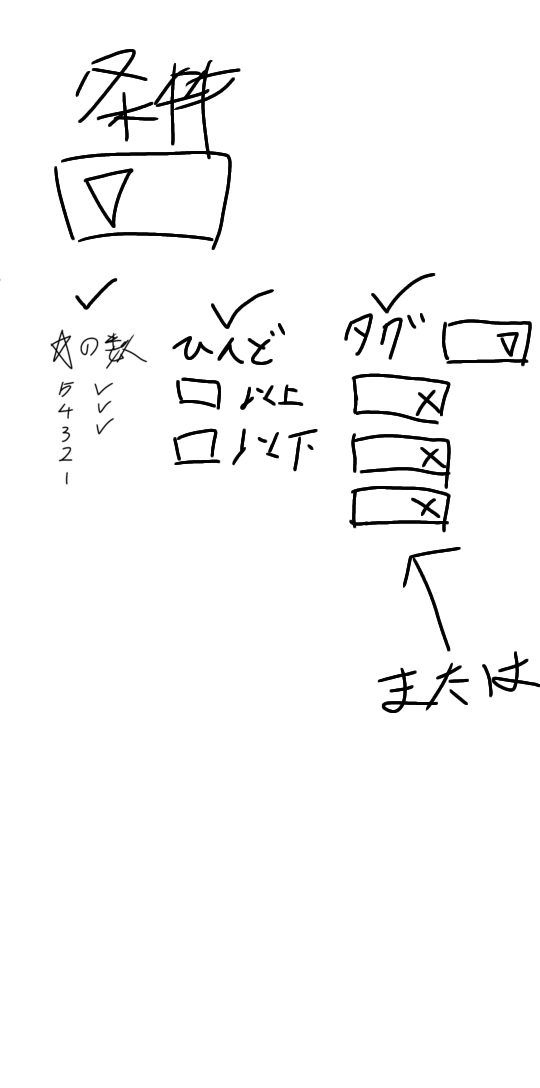 条件
☆の数
5
4
3
2
1
ひんど
以上
以下
タグ
または